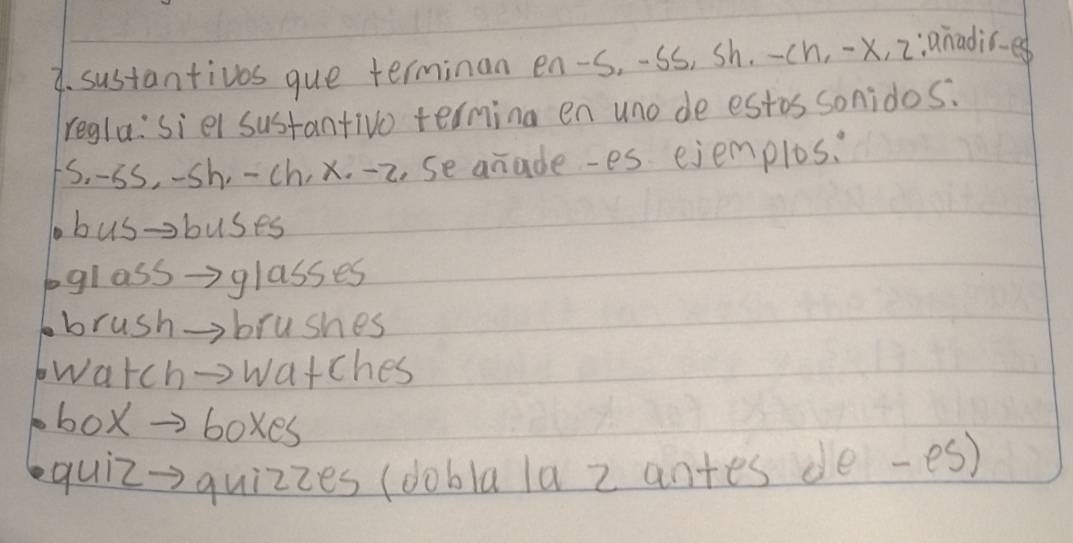 2. sustantivos que terminan en -s, -ss, sh. -ch, -x, z: añadir-es
regla: si el sustantivo termina en uno de estos sonidos:
-s, -ss, -sh, -ch, x. -z, se añade -es. ejemplos:
• bus → buses
• glass → glasses
• brush → brushes
• watch → watches
• box → boxes
• quiz → quizzes (dobla la z antes de -es)